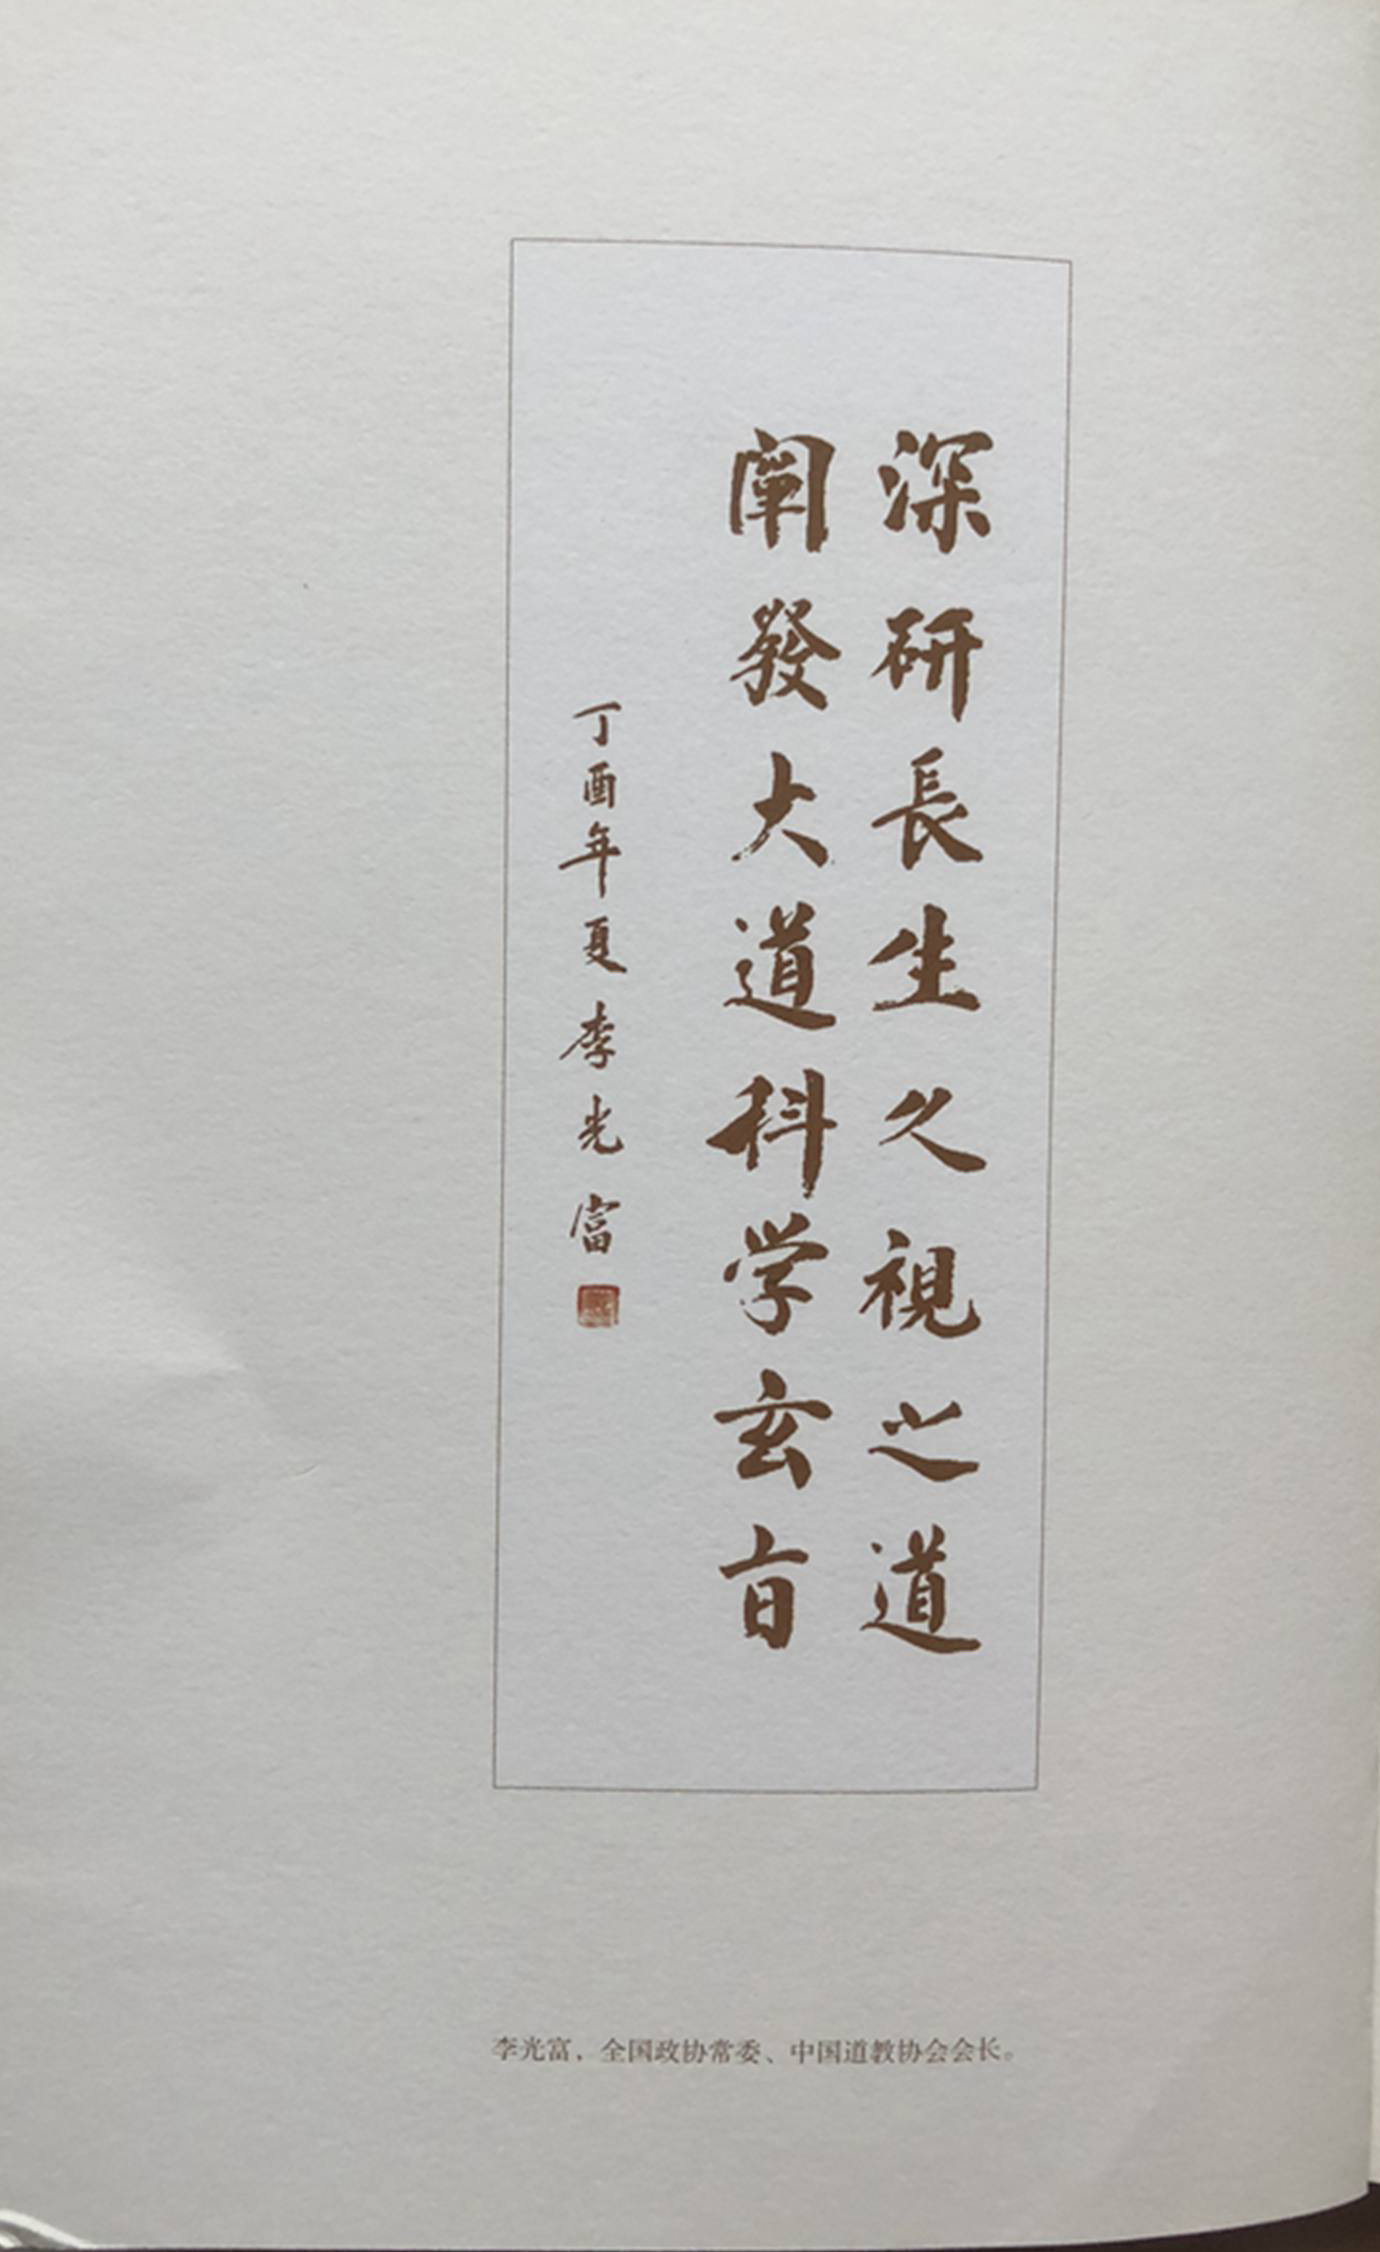 深研長生久視之道
闡發大道科学玄旨
丁酉年夏李光富
李光富，全国政协常委、中国道教协会会长。